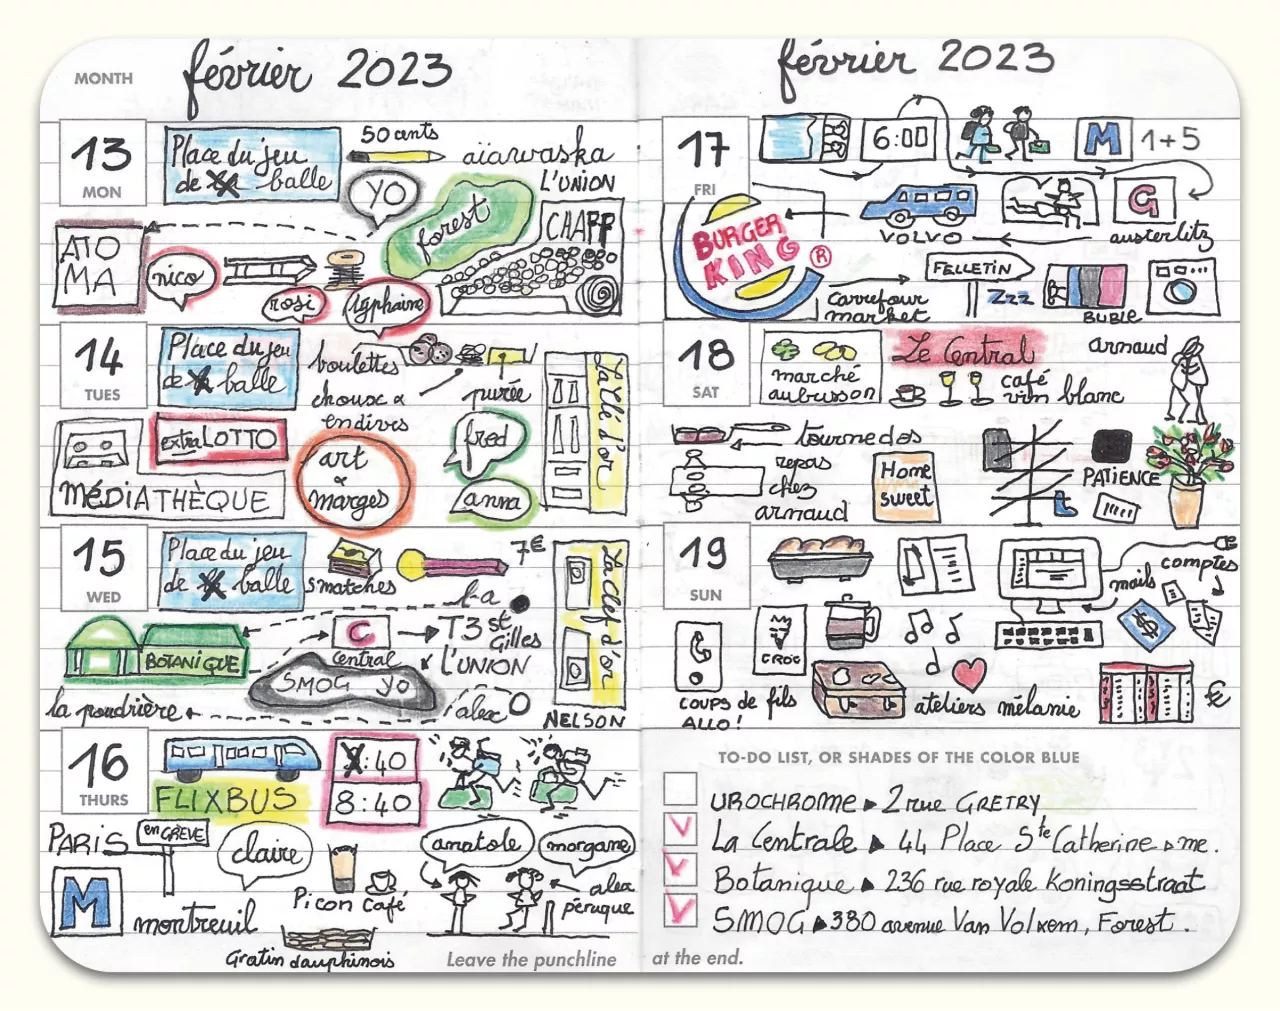 MONTH
février 2023
13
MON
Place du jeu
de balle
50 cents
YO
aïawaska
L'UNION
forest
CHAFF
ATO
MA
nico
rosi
14
TUES
Place du jeu
de balle
boulettes
choux &
endives
purée
La Clé d'or
extra LOTTO
MÉDIATHÈQUE
art
&
marges
fred
anna
15
WED
Place du jeu
de balle
5 matches
7€
BOTANIQUE
C
central
T3 st
Gilles
L'UNION
SMOG YO
la poudrière
La Clef d'or
NELSON
16
THURS
FLIXBUS
:40
8:40
PARIS
en GRÈVE
claire
M
montreuil
Picon
Café
Gratin dauphinois
anatole
morgane
alex
péruque
Leave the punchline
février 2023
17
FRI
6:00
M
1+5
BURGER
KING ®
VOLVO
G
austerlitz
Carrefour
market
FELLETIN
Zzz
BUBLE
18
SAT
marché
aubusson
Le Central
café
vin blanc
arnaud
tournedos
repas
chez
arnaud
Home
sweet
PATIENCE
19
SUN
mails
comptes
$
CROC
COUPS de fils
ALLO!
ateliers mélanie
€
TO-DO LIST, OR SHADES OF THE COLOR BLUE
UROCHROME ▶ 2 rue GRETRY
La Centrale ▶ 44 Place Ste Catherine ▶ me.
Botanique ▶ 236 rue royale Koningsstraat
SMOG ▶ 380 avenue Van Volxem, Forest.
at the end.